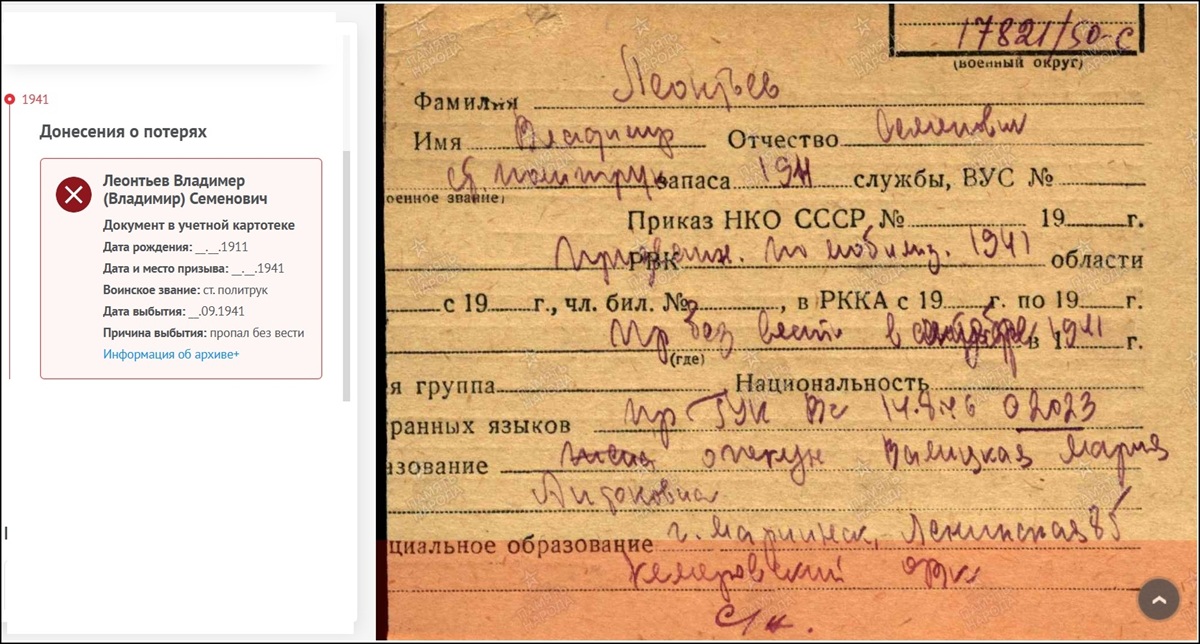 1941
Донесения о потерях
Леонтьев Владимир
(Владимир) Семенович
Документ в учетной картотеке
Дата рождения: __.__.1911
Дата и место призыва: __.__.1941
Воинское звание: ст. политрук
Дата выбытия: __.09.1941
Причина выбытия: пропал без вести
Информация об архиве+
17821/50-с
(военный округ)
Фамилия Леонтьев
Имя Владимир Отчество Семенович
ст. политрук запаса 1911 службы, ВУС №
оенное звание)
Приказ НКО СССР, № 19 г.
РВК по мобилиз. 1941 области
с 19 г., чл. бил. № , в РККА с 19 г. по 19 г.
Пр без вести в 1941 г.
(где)
я группа Национальность
ранных языков Пр ГУК ВС 14.8.46 02023
азование жена опекун Валицкая Мария
Антоновна
циальное образование г. Мариинск, Ленинская 85
Кемеровский ОВК